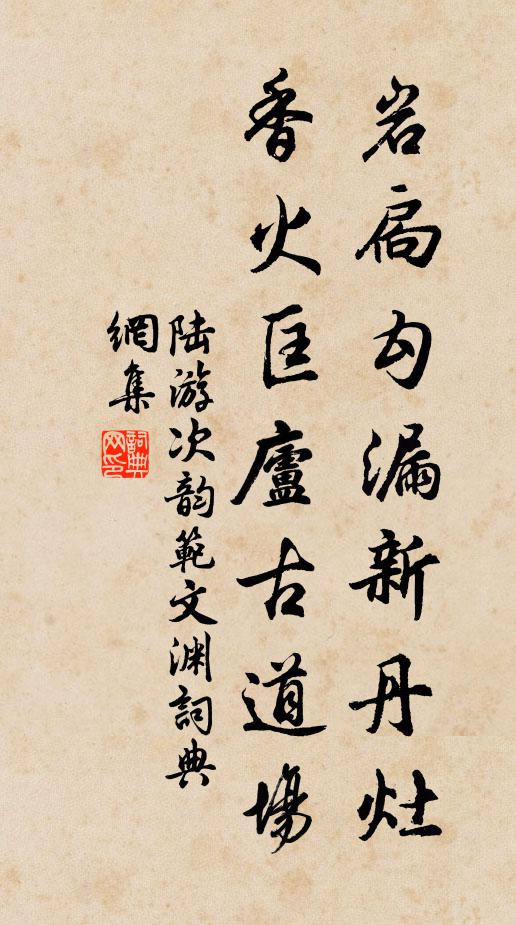 岩扃勾漏新丹灶
香火匡廬古道場
陆游次韵範文渊詞典
網集
詞典
网印